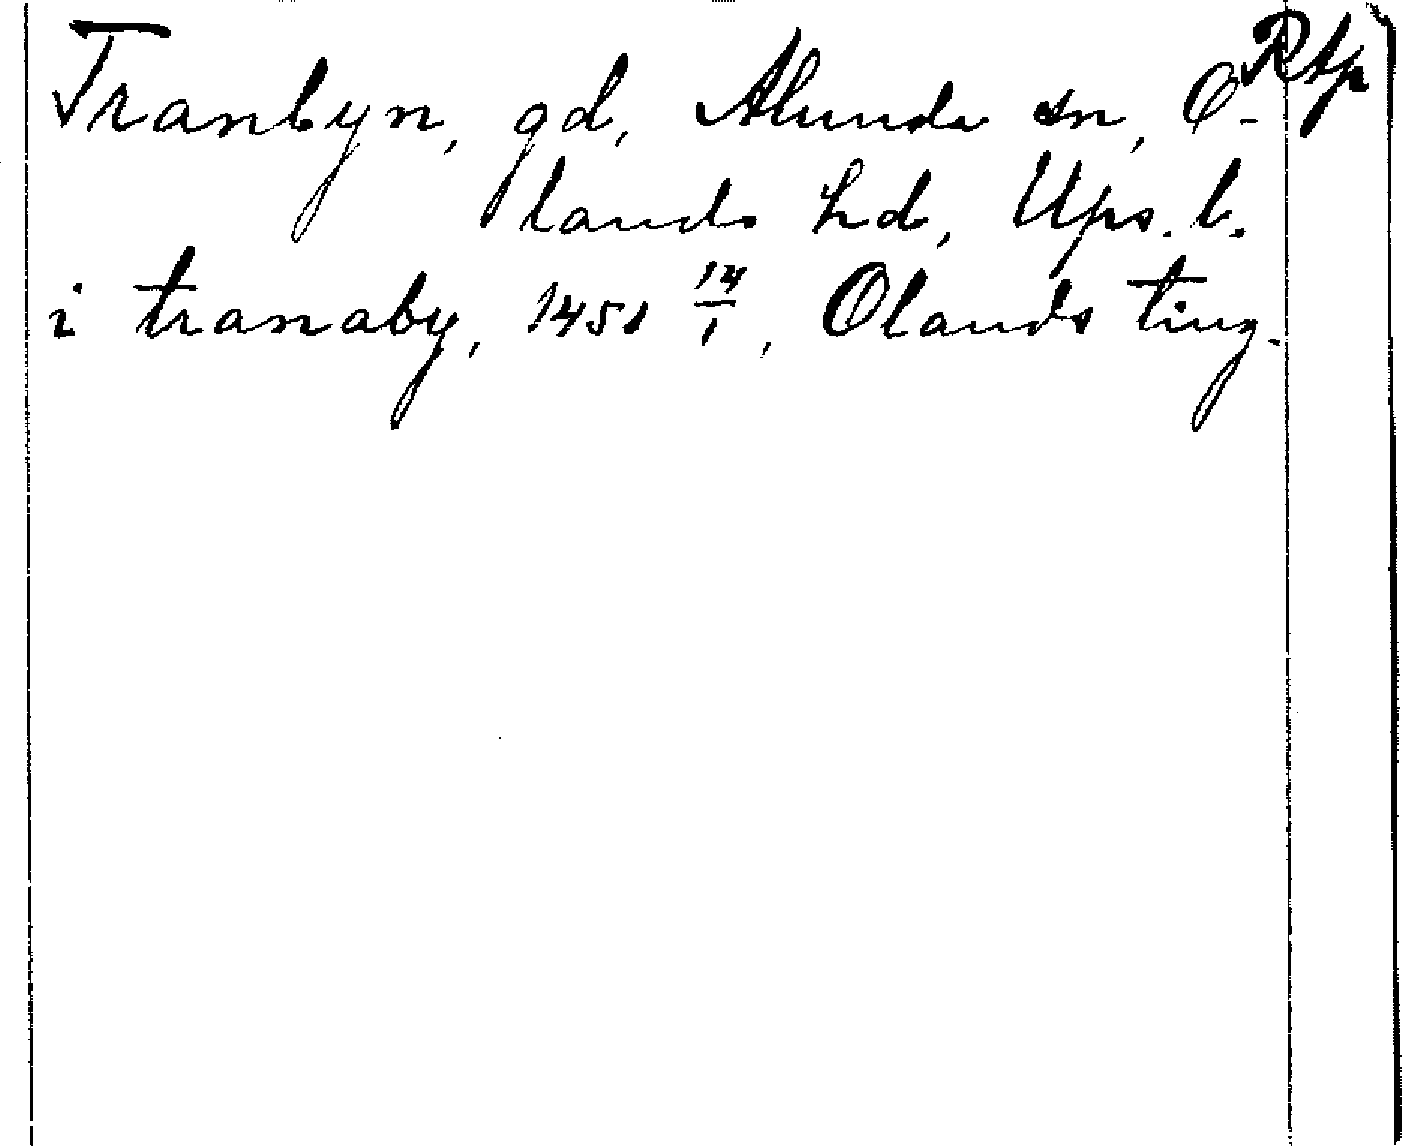 Rtp
Tranbyn, gd, Alunda sn, O-
lands hd, Ups. l.
i tranaby, 1451 14/1, Olands ting.